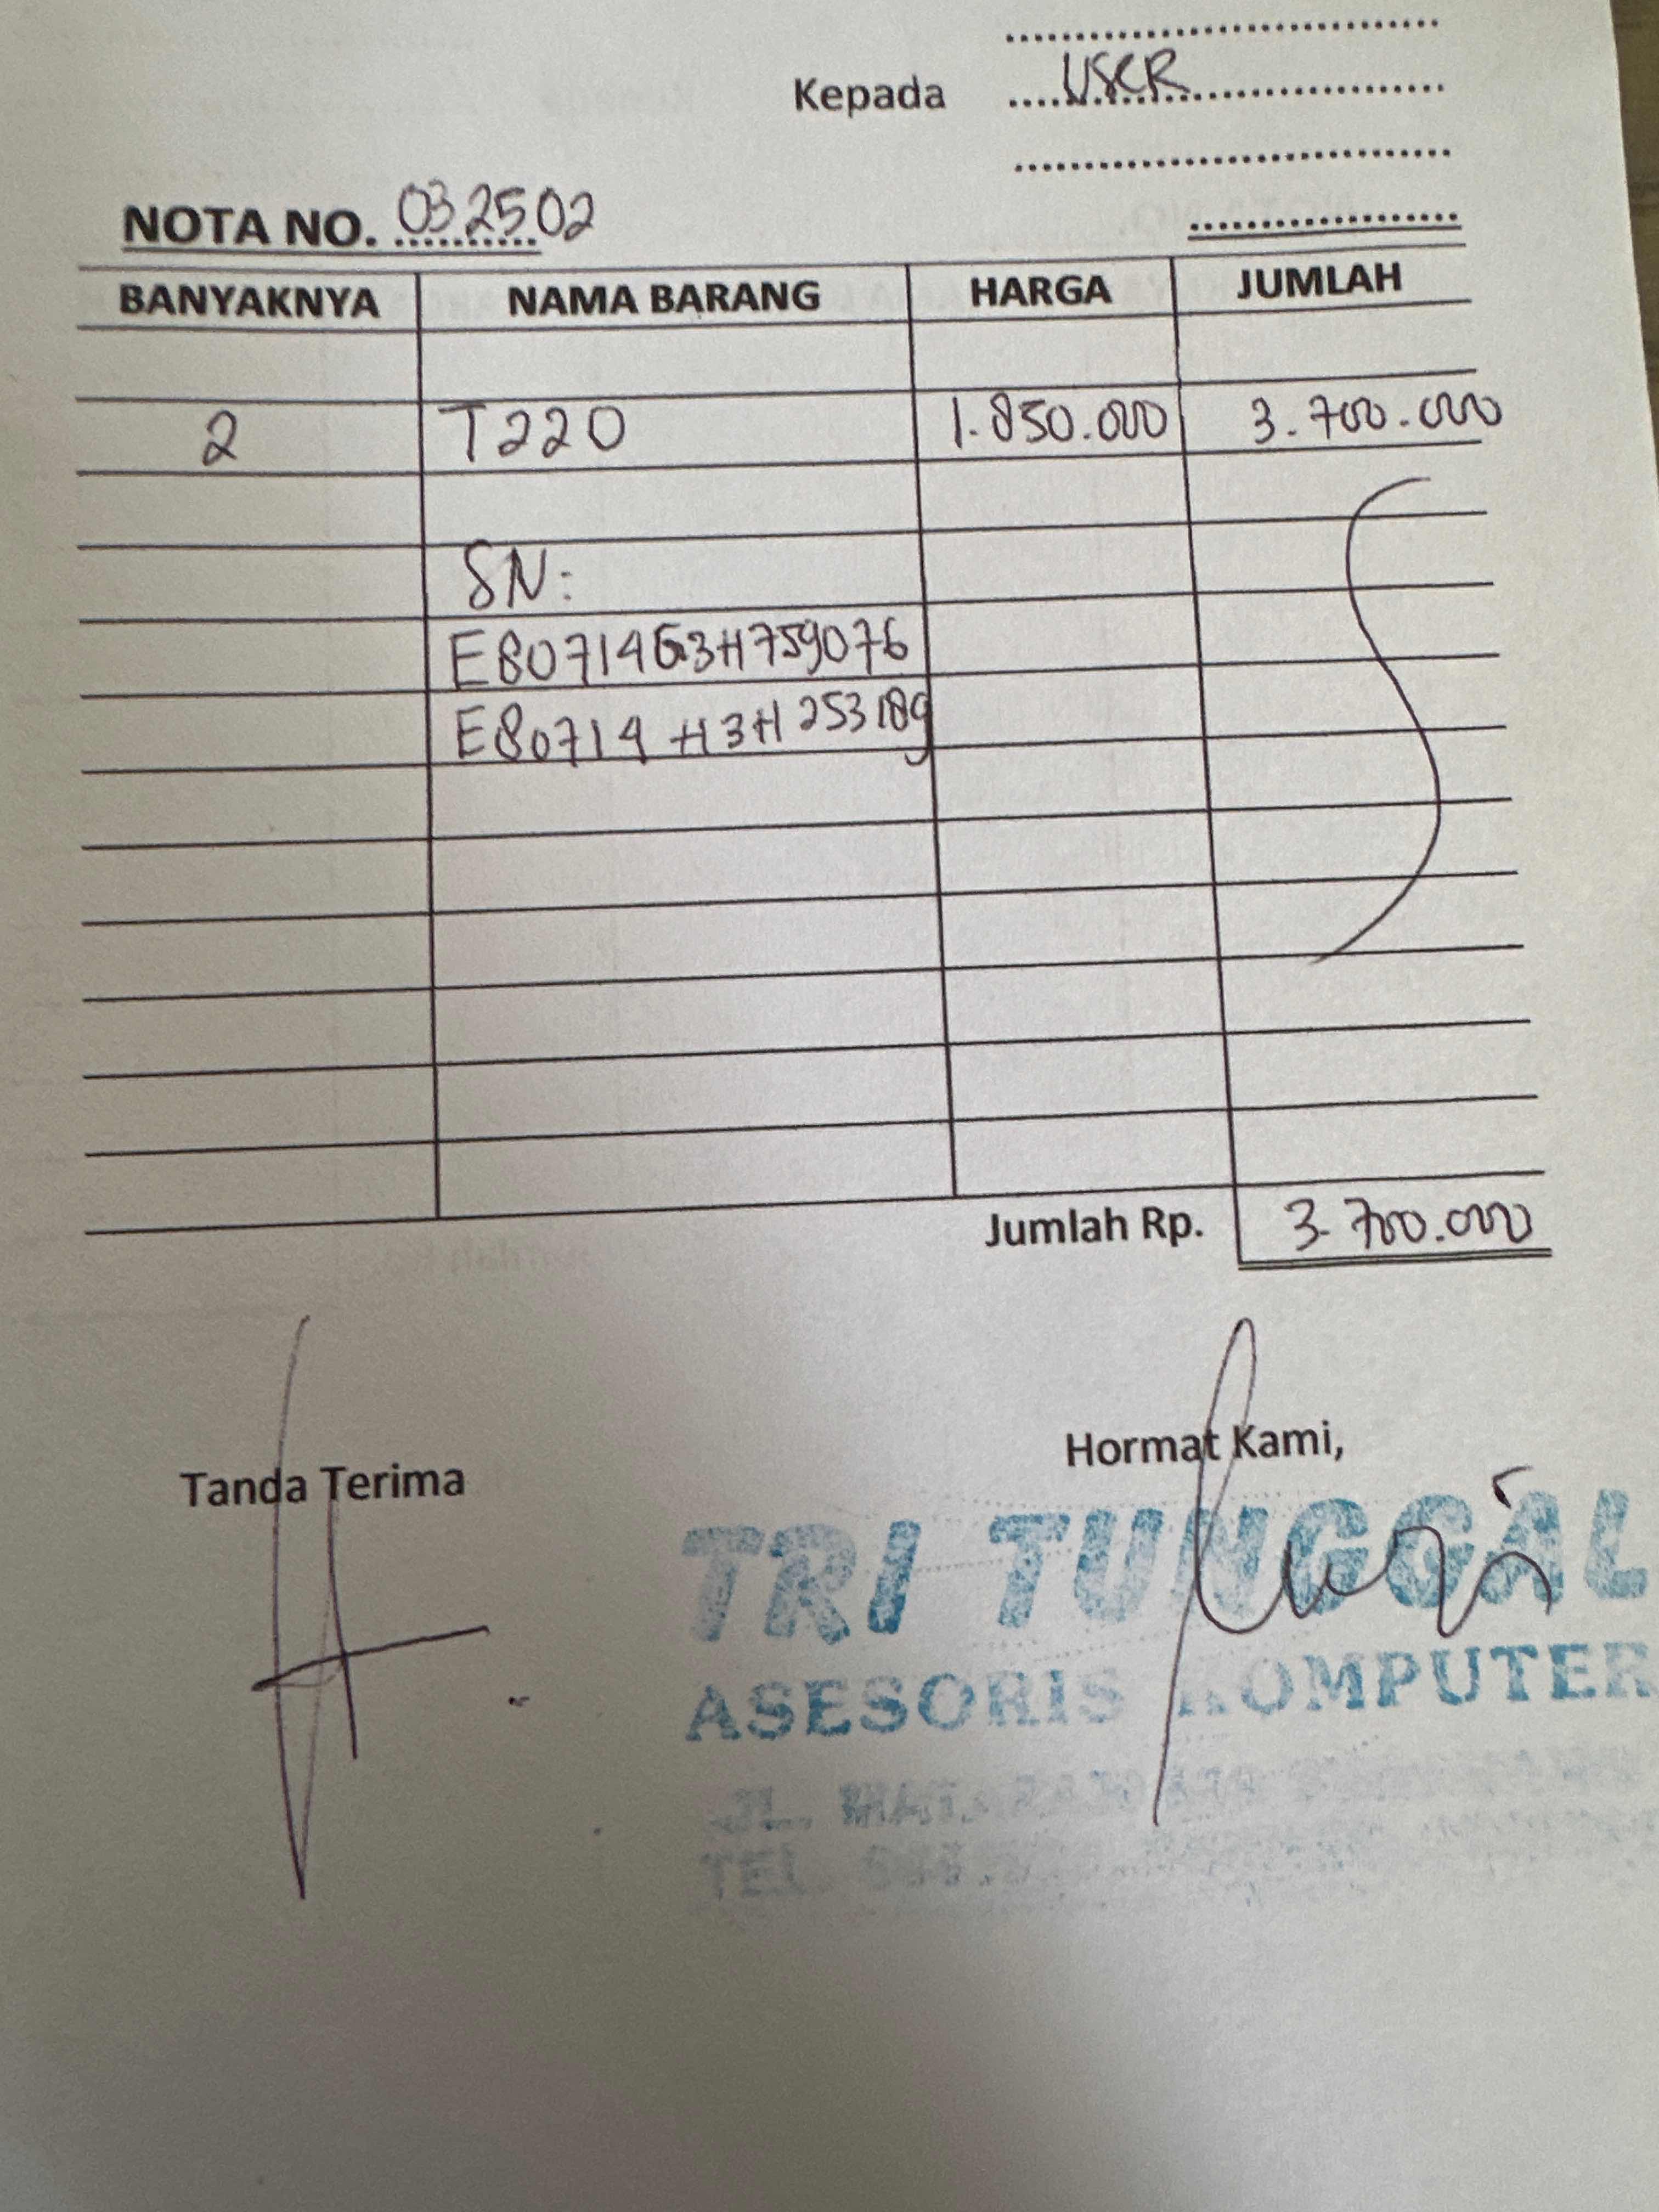 Kepada USER
NOTA NO. 032502
BANYAKNYA NAMA BARANG HARGA JUMLAH
2 T220 1.850.000 3.700.000
SN:
E80714G3H759076
E80714H3H253189
Jumlah Rp. 3.700.000
Hormat Kami,
Tanda Terima
TRI TUNGGAL
ASESORIS KOMPUTER
JL.
TEL.